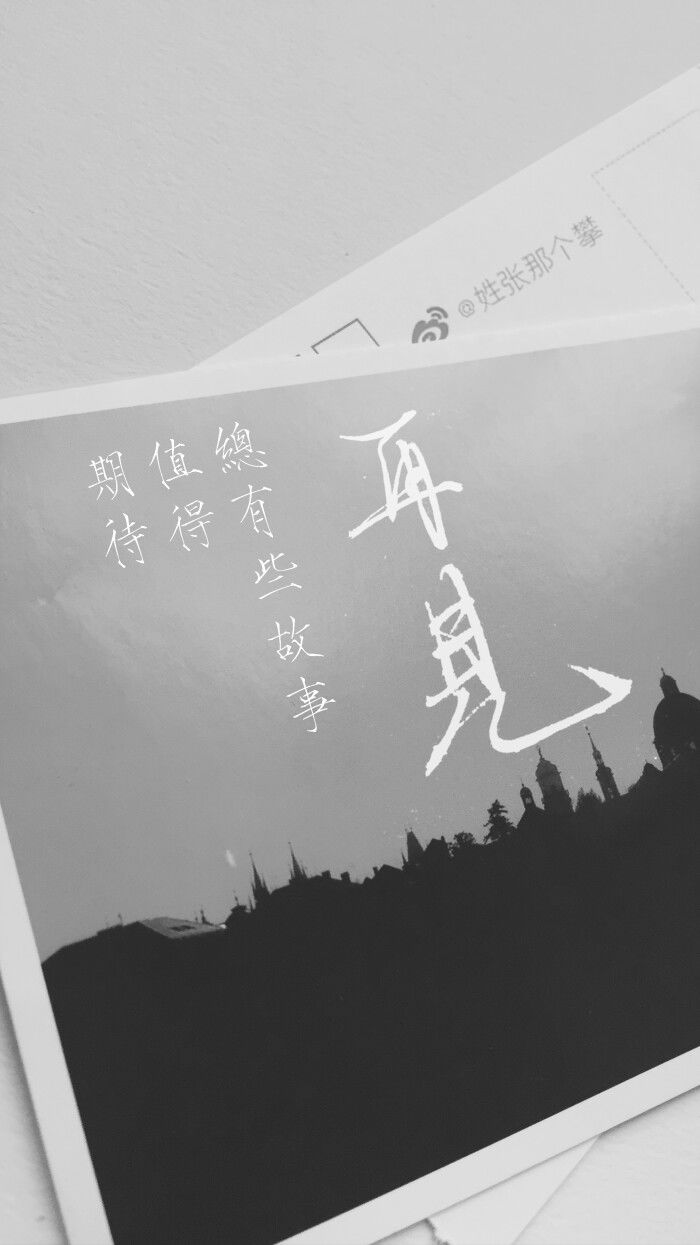 @姓张那个攀
再見
總有些故事
值得
期待